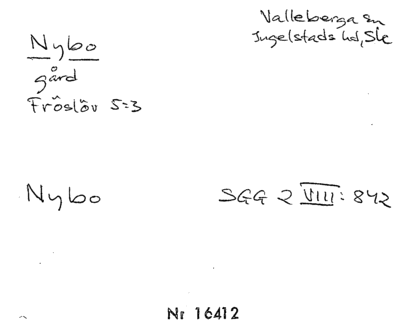 Nybo
gård
Fröslöv 5:3
Valleberga sn
Ingelstads hd, Sk
Nybo
SGG 2 VIII: 842
Nr 16412